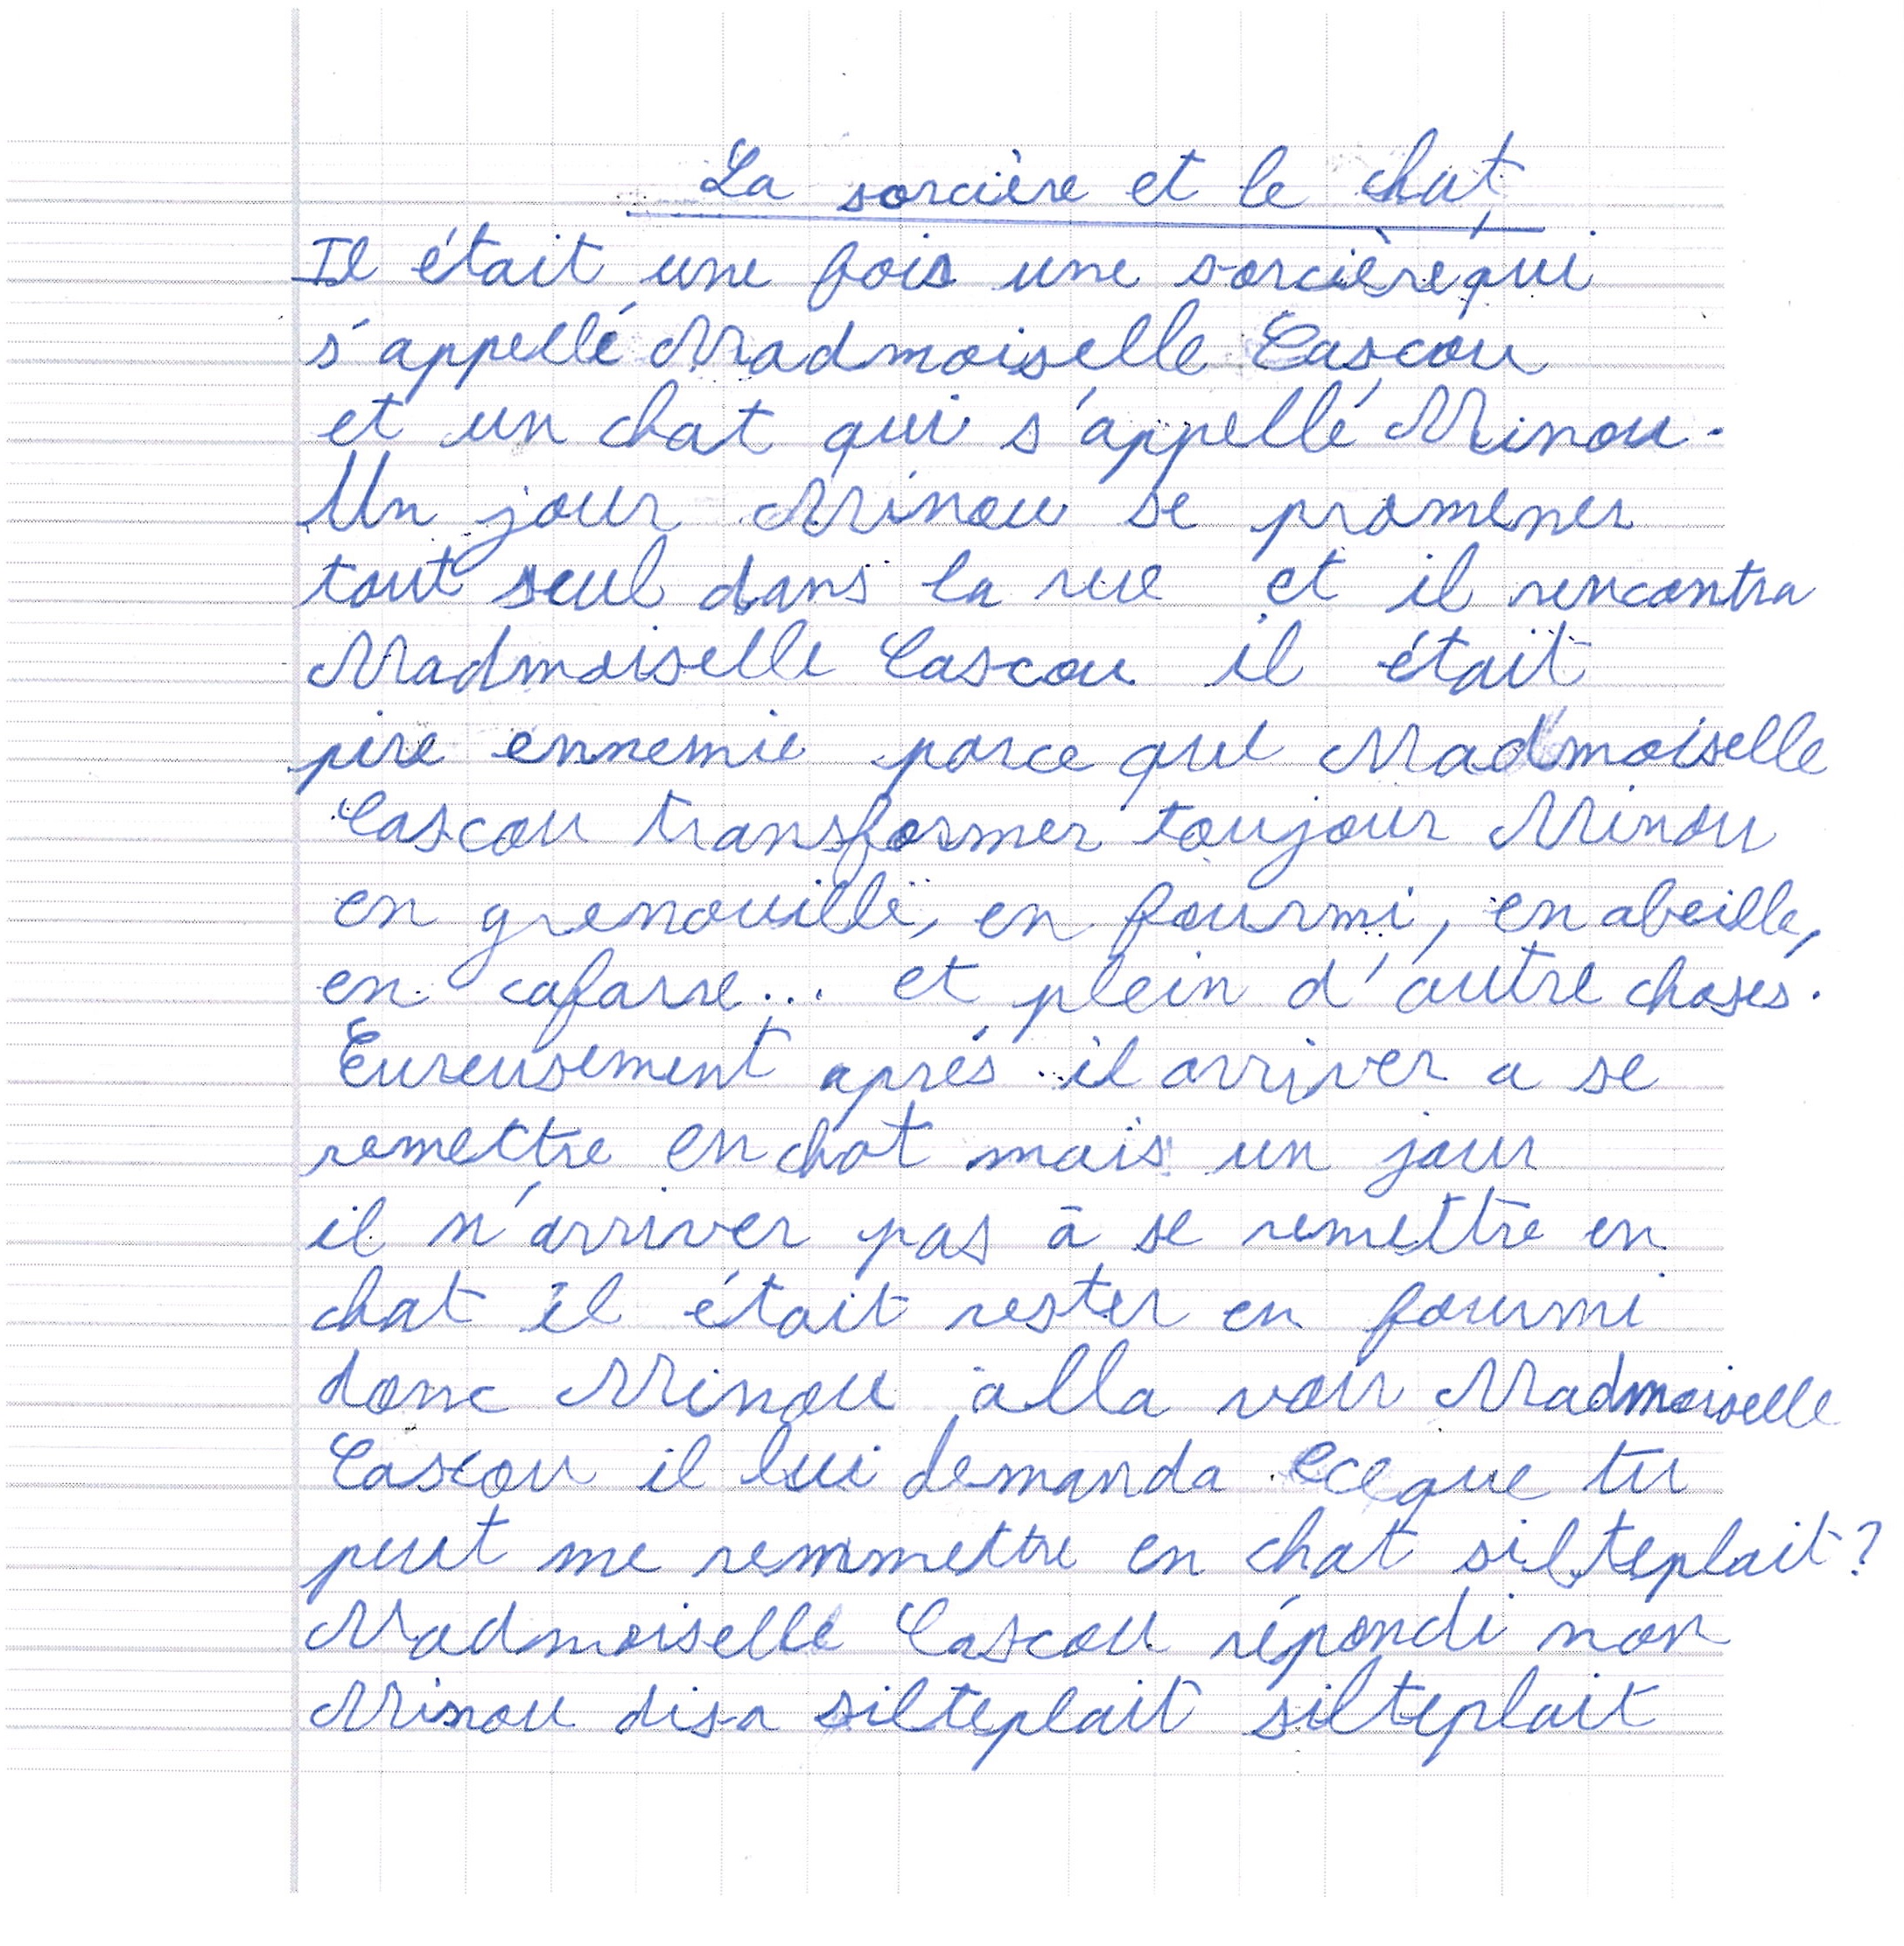 La sorcière et le chat
Il était une fois une sorcière qui
s'appellé Madmoiselle Cascou
et un chat qui s'appellé Minou.
Un jour Minou se promener
tout seul dans la rue et il rencontra
Madmoiselle Cascou il était
pire ennemie parce que Madmoiselle
Cascou transformer toujour Minou
en grenouille, en fourmi, en abeille,
en cafare... et plein d'autre choses.
Eureusement aprés il arriver a se
remettre en chat mais un jour
il n'arriver pas à se remettre en
chat il était rester en fourmi
donc Minou alla voir Madmoiselle
Cascou il lui demanda eceque tu
peut me remmettre en chat silteplait?
Madmoiselle Cascou répondi non
Minou disa silteplait silteplait